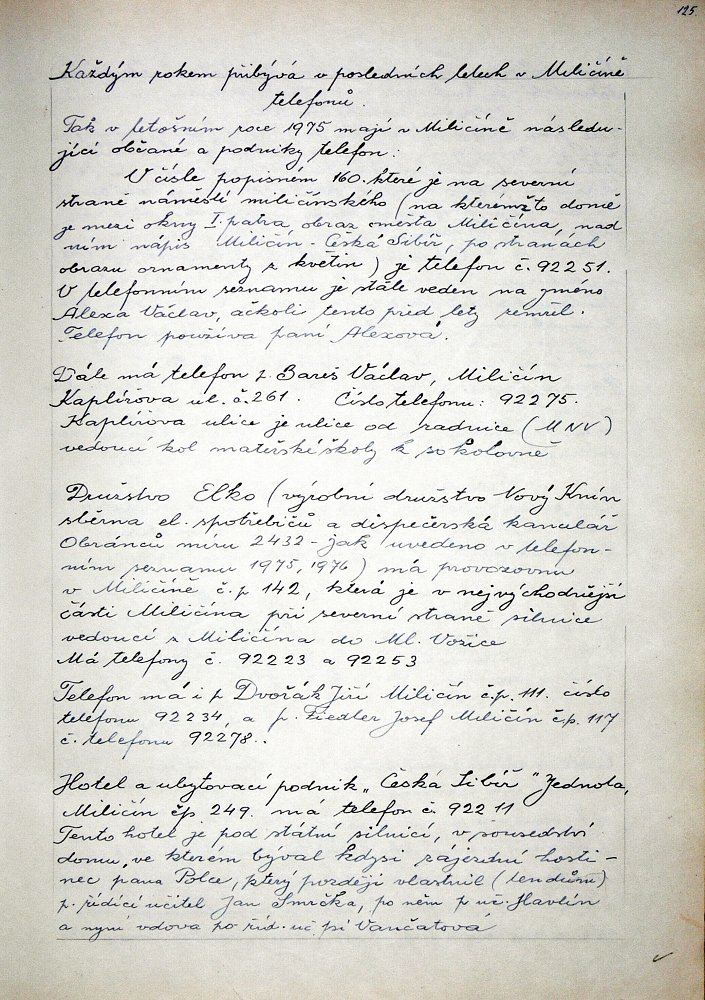 125
Každým rokem přibývá v posledních letech v Miličíně
telefonů.
Tak v letošním roce 1975 mají v Miličíně následu-
jící občané a podniky telefon:
V čísle popisném 160. které je na severní
straně náměstí miličínského (na kterémžto domě
je mezi okny I. patra obraz města Miličína, nad
ním nápis Miličín - Česká Sibiř, po stranách
obrazu ornamenty z květin) je telefon č. 92251.
V telefonním seznamu je stále veden na jméno
Alexa Václav, ačkoli tento před lety zemřel.
Telefon používa paní Alexová.
Dále má telefon p. Bareš Václav, Miličín
Kaplířova ul. č. 261. Číslo telefonu: 92275.
Kaplířova ulice je ulice od radnice (MNV)
vedoucí kol mateřské školy k sokolovně
Družstvo Elko (výrobní družstvo Nový Knín
sběrna el. spotřebičů a dispečerská kancelář
Obránců míru 2432 - jak uvedeno v telefon-
ním seznamu 1975, 1976) má provozovnu
v Miličíně č.p 142, která je v nejvýchodnější
části Miličína při severní straně silnice
vedoucí z Miličína do Ml. Vožice
Má telefony č. 92223 a 92253
Telefon má i p Dvořák Jiří Miličín č.p. 111. číslo
telefonu 92234, a p. Fiedler Josef Miličín č.p. 117
č. telefonu 92278..
Hotel a ubytovací podnik „Česká Sibiř" Jednota,
Miličín čp. 249. má telefon č. 92211
Tento hotel je pod státní silnicí, v sousedství
domu, ve kterém býval kdysi zájezdní hosti-
nec pana Polce, který později vlastnil (ten dům)
p. řídící učitel Jan Smrčka, po něm p uč. Havlín
a nyní vdova po říd. uč. pí Vančatová